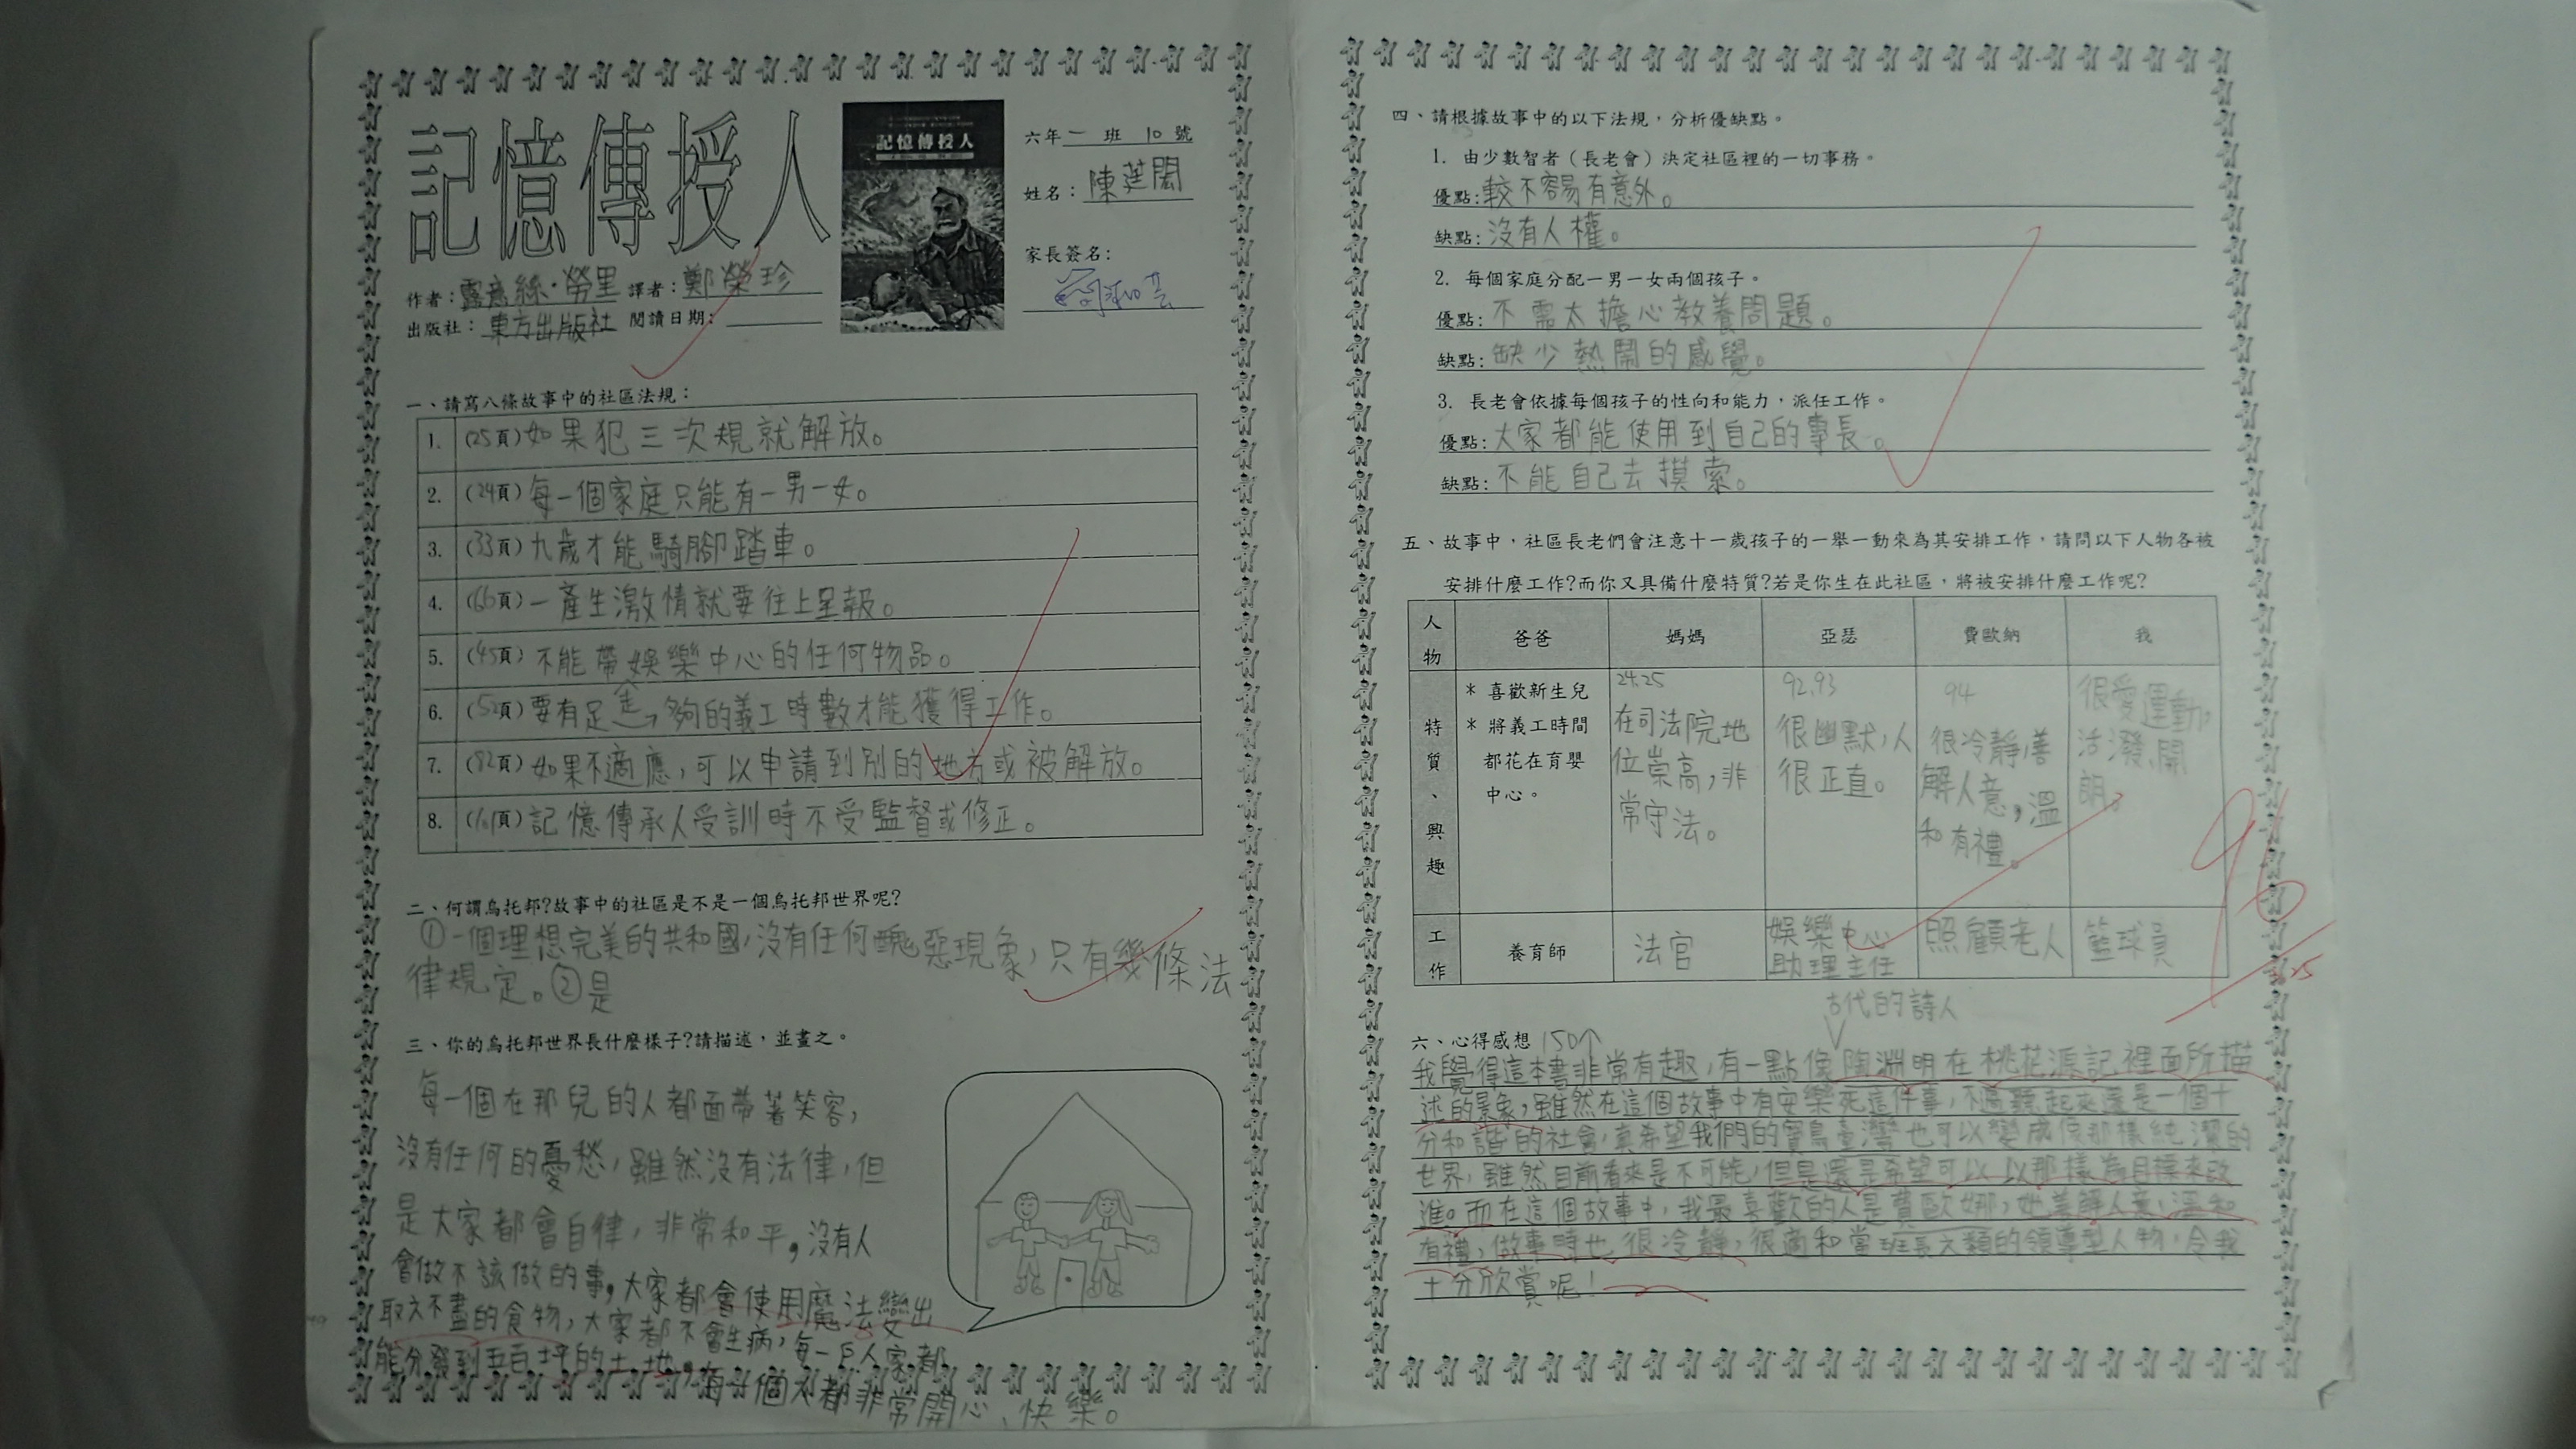 記憶傳授人
記憶傳授人
六年一班 10 號
姓名：陳莛閎
家長簽名：
作者：露意絲·勞里 譯者：鄭榮珍
出版社：東方出版社 閱讀日期：
一、請寫八條故事中的社區法規：
1. (25頁)如果犯三次規就解放。
2. (24頁)每一個家庭只能有一男一女。
3. (33頁)九歲才能騎腳踏車。
4. (66頁)一產生激情就要往上呈報。
5. (45頁)不能帶娛樂中心的任何物品。
6. (52頁)要有足夠的義工時數才能獲得工作。
7. (82頁)如果不適應，可以申請到別的地方或被解放。
8. 記憶傳承人受訓時不受監督或修正。
二、何謂烏托邦?故事中的社區是不是一個烏托邦世界呢?
①一個理想完美的共和國，沒有任何醜惡現象，只有幾條法
律規定。②是
三、你的烏托邦世界長什麼樣子?請描述，並畫之。
每一個在那兒的人都面帶著笑容，
沒有任何的憂愁，雖然沒有法律，但
是大家都會自律，非常和平，沒有人
會做不該做的事，大家都會使用魔法變出
取之不盡的食物，大家都不會生病，每一戶人家都
能分發到五百坪的土地，每一個人都非常開心、快樂。
四、請根據故事中的以下法規，分析優缺點。
1. 由少數智者（長老會）決定社區裡的一切事務。
優點:較不容易有意外。
缺點:沒有人權。
2. 每個家庭分配一男一女兩個孩子。
優點:不需太擔心教養問題。
缺點:缺少熱鬧的感覺。
3. 長老會依據每個孩子的性向和能力，派任工作。
優點:大家都能使用到自己的專長。
缺點:不能自己去摸索。
五、故事中，社區長老們會注意十一歲孩子的一舉一動來為其安排工作，請問以下人物各被
安排什麼工作?而你又具備什麼特質?若是你生在此社區，將被安排什麼工作呢?
人物 爸爸 媽媽 亞瑟 費歐納 我
特質、興趣
* 喜歡新生兒
* 將義工時間
都花在育嬰
中心。
24.25
在司法院地
位崇高，非
常守法。
92.93
很幽默，人
很正直。
94
很冷靜，善
解人意，溫
和有禮。
很愛運動，
活潑、開
朗。
工作 養育師 法官 娛樂中心助理主任 照顧老人 籃球員
96
古代的詩人
六、心得感想 150↑
我覺得這本書非常有趣，有一點像陶淵明在桃花源記裡面所描
述的景象，雖然在這個故事中有安樂死這件事，不過聽起來還是一個十
分和諧的社會，真希望我們的寶島臺灣也可以變成像那樣純潔的
世界，雖然目前看來是不可能，但是還是希望可以以那樣為目標來改
進。而在這個故事中，我最喜歡的人是費歐娜，她善解人意，溫和
有禮，做事時也很冷靜，很適和當班長之類的領導型人物，令我
十分欣賞呢！